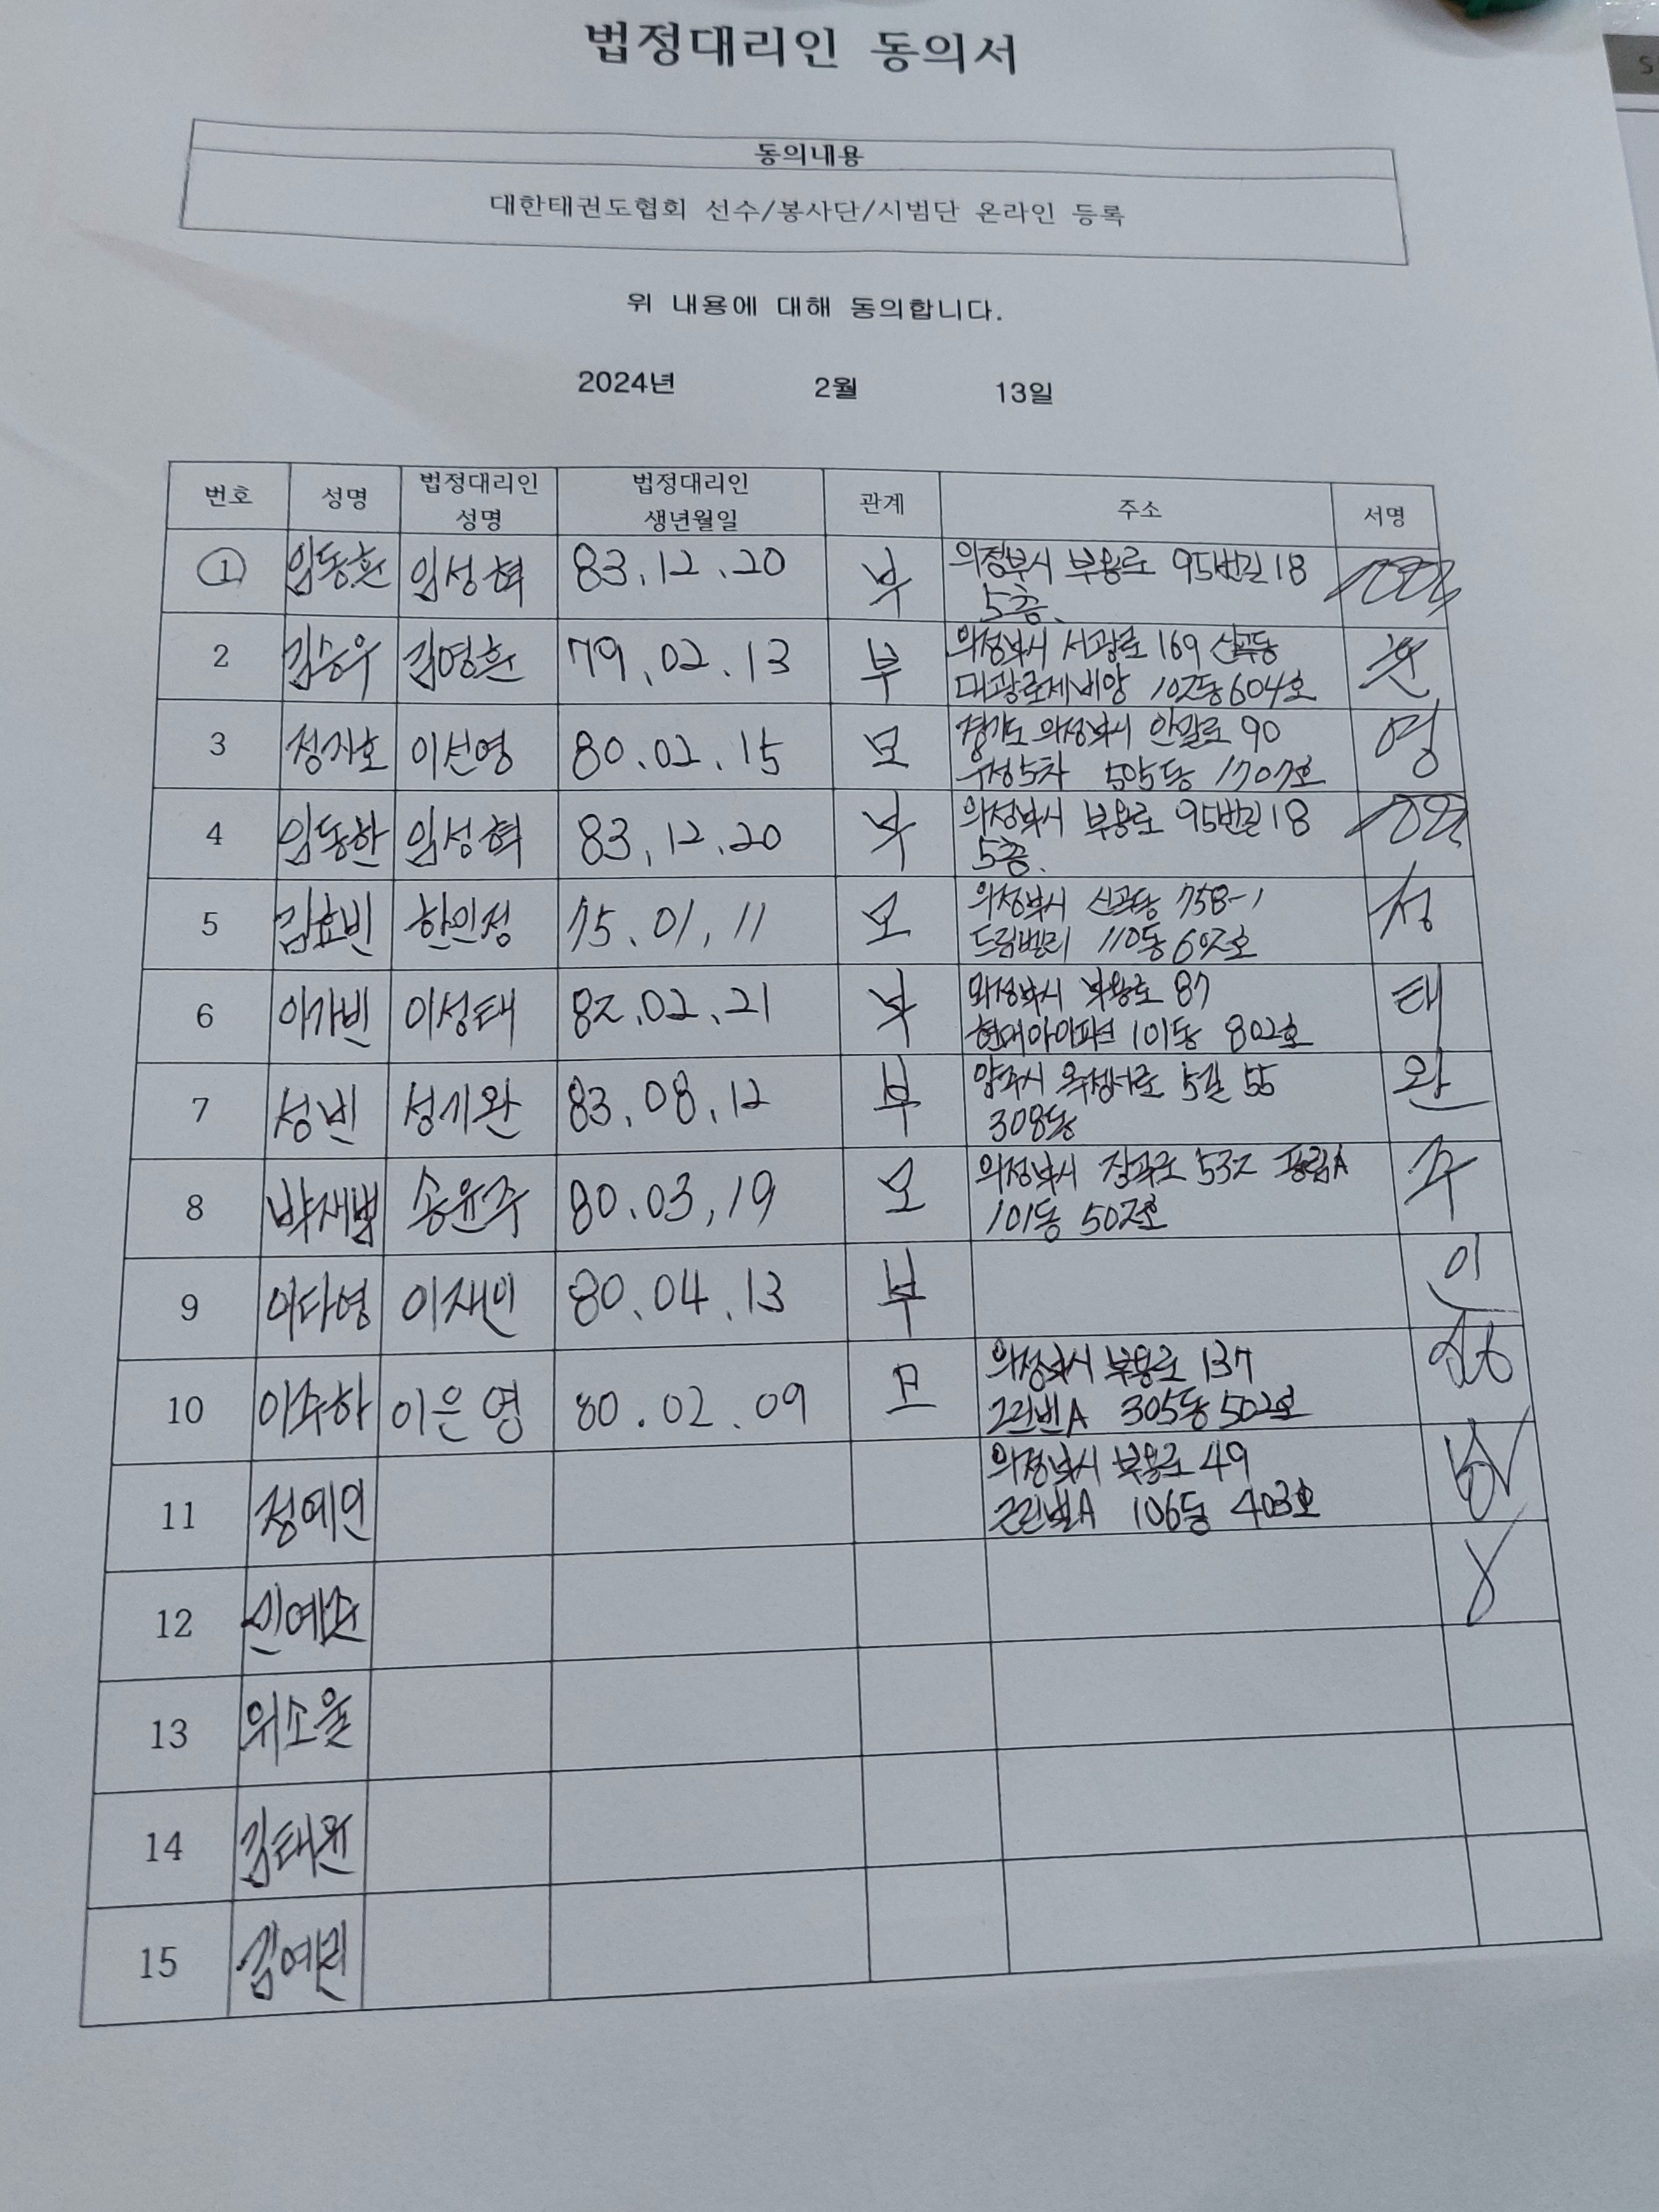 법정대리인 동의서
동의내용
대한태권도협회 선수/봉사단/시범단 온라인 등록
위 내용에 대해 동의합니다.
2024년 2월 13일
번호 성명 법정대리인 성명 법정대리인 생년월일 관계 주소 서명
1 임동환 임성혁 83.12.20 부 의정부시 부용로 95번길 18
5층.
2 김승우 김영환 79.02.13 부 의정부시 서광로 169 신곡동 환
대광로제비앙 102동 604호
3 정지호 이선영 80.02.15 모 경기도 의정부시 안말로 90 영
우성5차 505동 1707호
4 임동한 임성혁 83.12.20 부 의정부시 부용로 95번길 18
5층.
5 김효빈 한의정 75.01.11 모 의정부시 신곡동 758-1 정
드림밸리 110동 602호
6 이가빈 이성태 82.02.21 부 의정부시 부용로 87 태
현대아이파크 101동 802호
7 성빈 성기완 83.08.12 부 양주시 옥정서로 5길 55 완
308동
8 박재범 송윤주 80.03.19 모 의정부시 장곡로 532 풍림A 주
101동 502호
9 이다영 이재인 80.04.13 부 인
10 이주하 이은영 80.02.09 모 의정부시 부용로 137
그린빌A 305동 502호
11 정예인 의정부시 부용로 49
그린빌A 106동 403호
12 민예준
13 위소율
14 김태윤
15 김예린